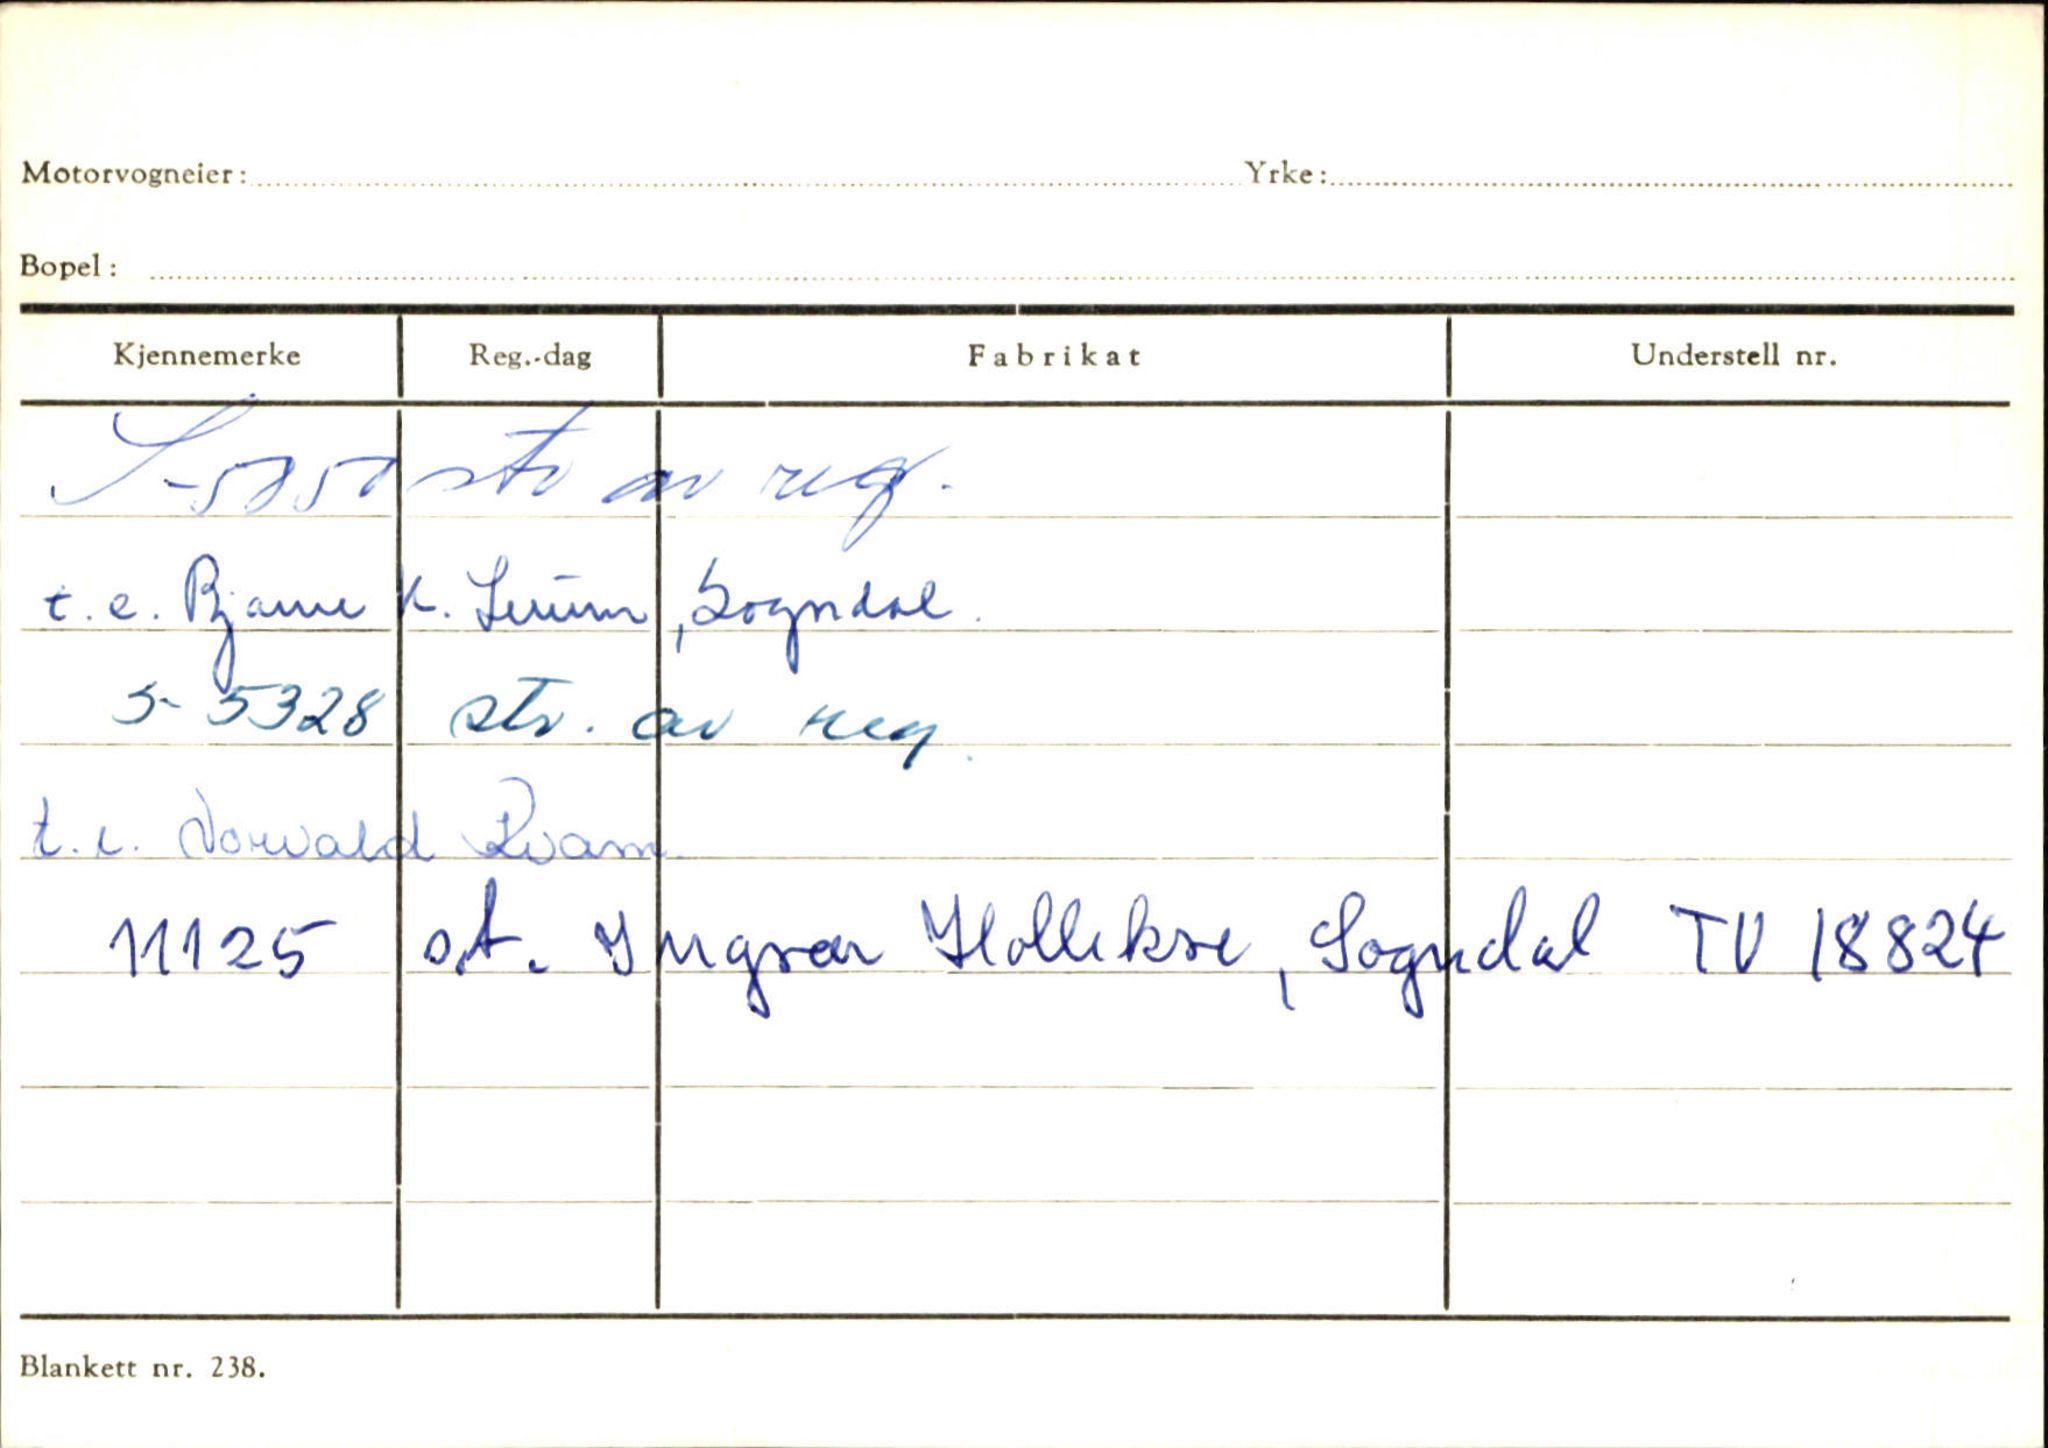 Motorvogneier: Yrke:
Bopel:
Kjennemerke Reg.-dag Fabrikat Understell nr.
str av reg.
t.e. Bjarne K. Lerum, Sogndal.
S-5328 str. av reg.
t.e. Torvald Kvam
11125 st. Yngvar Hollekve, Sogndal TV 18824
Blankett nr. 238.